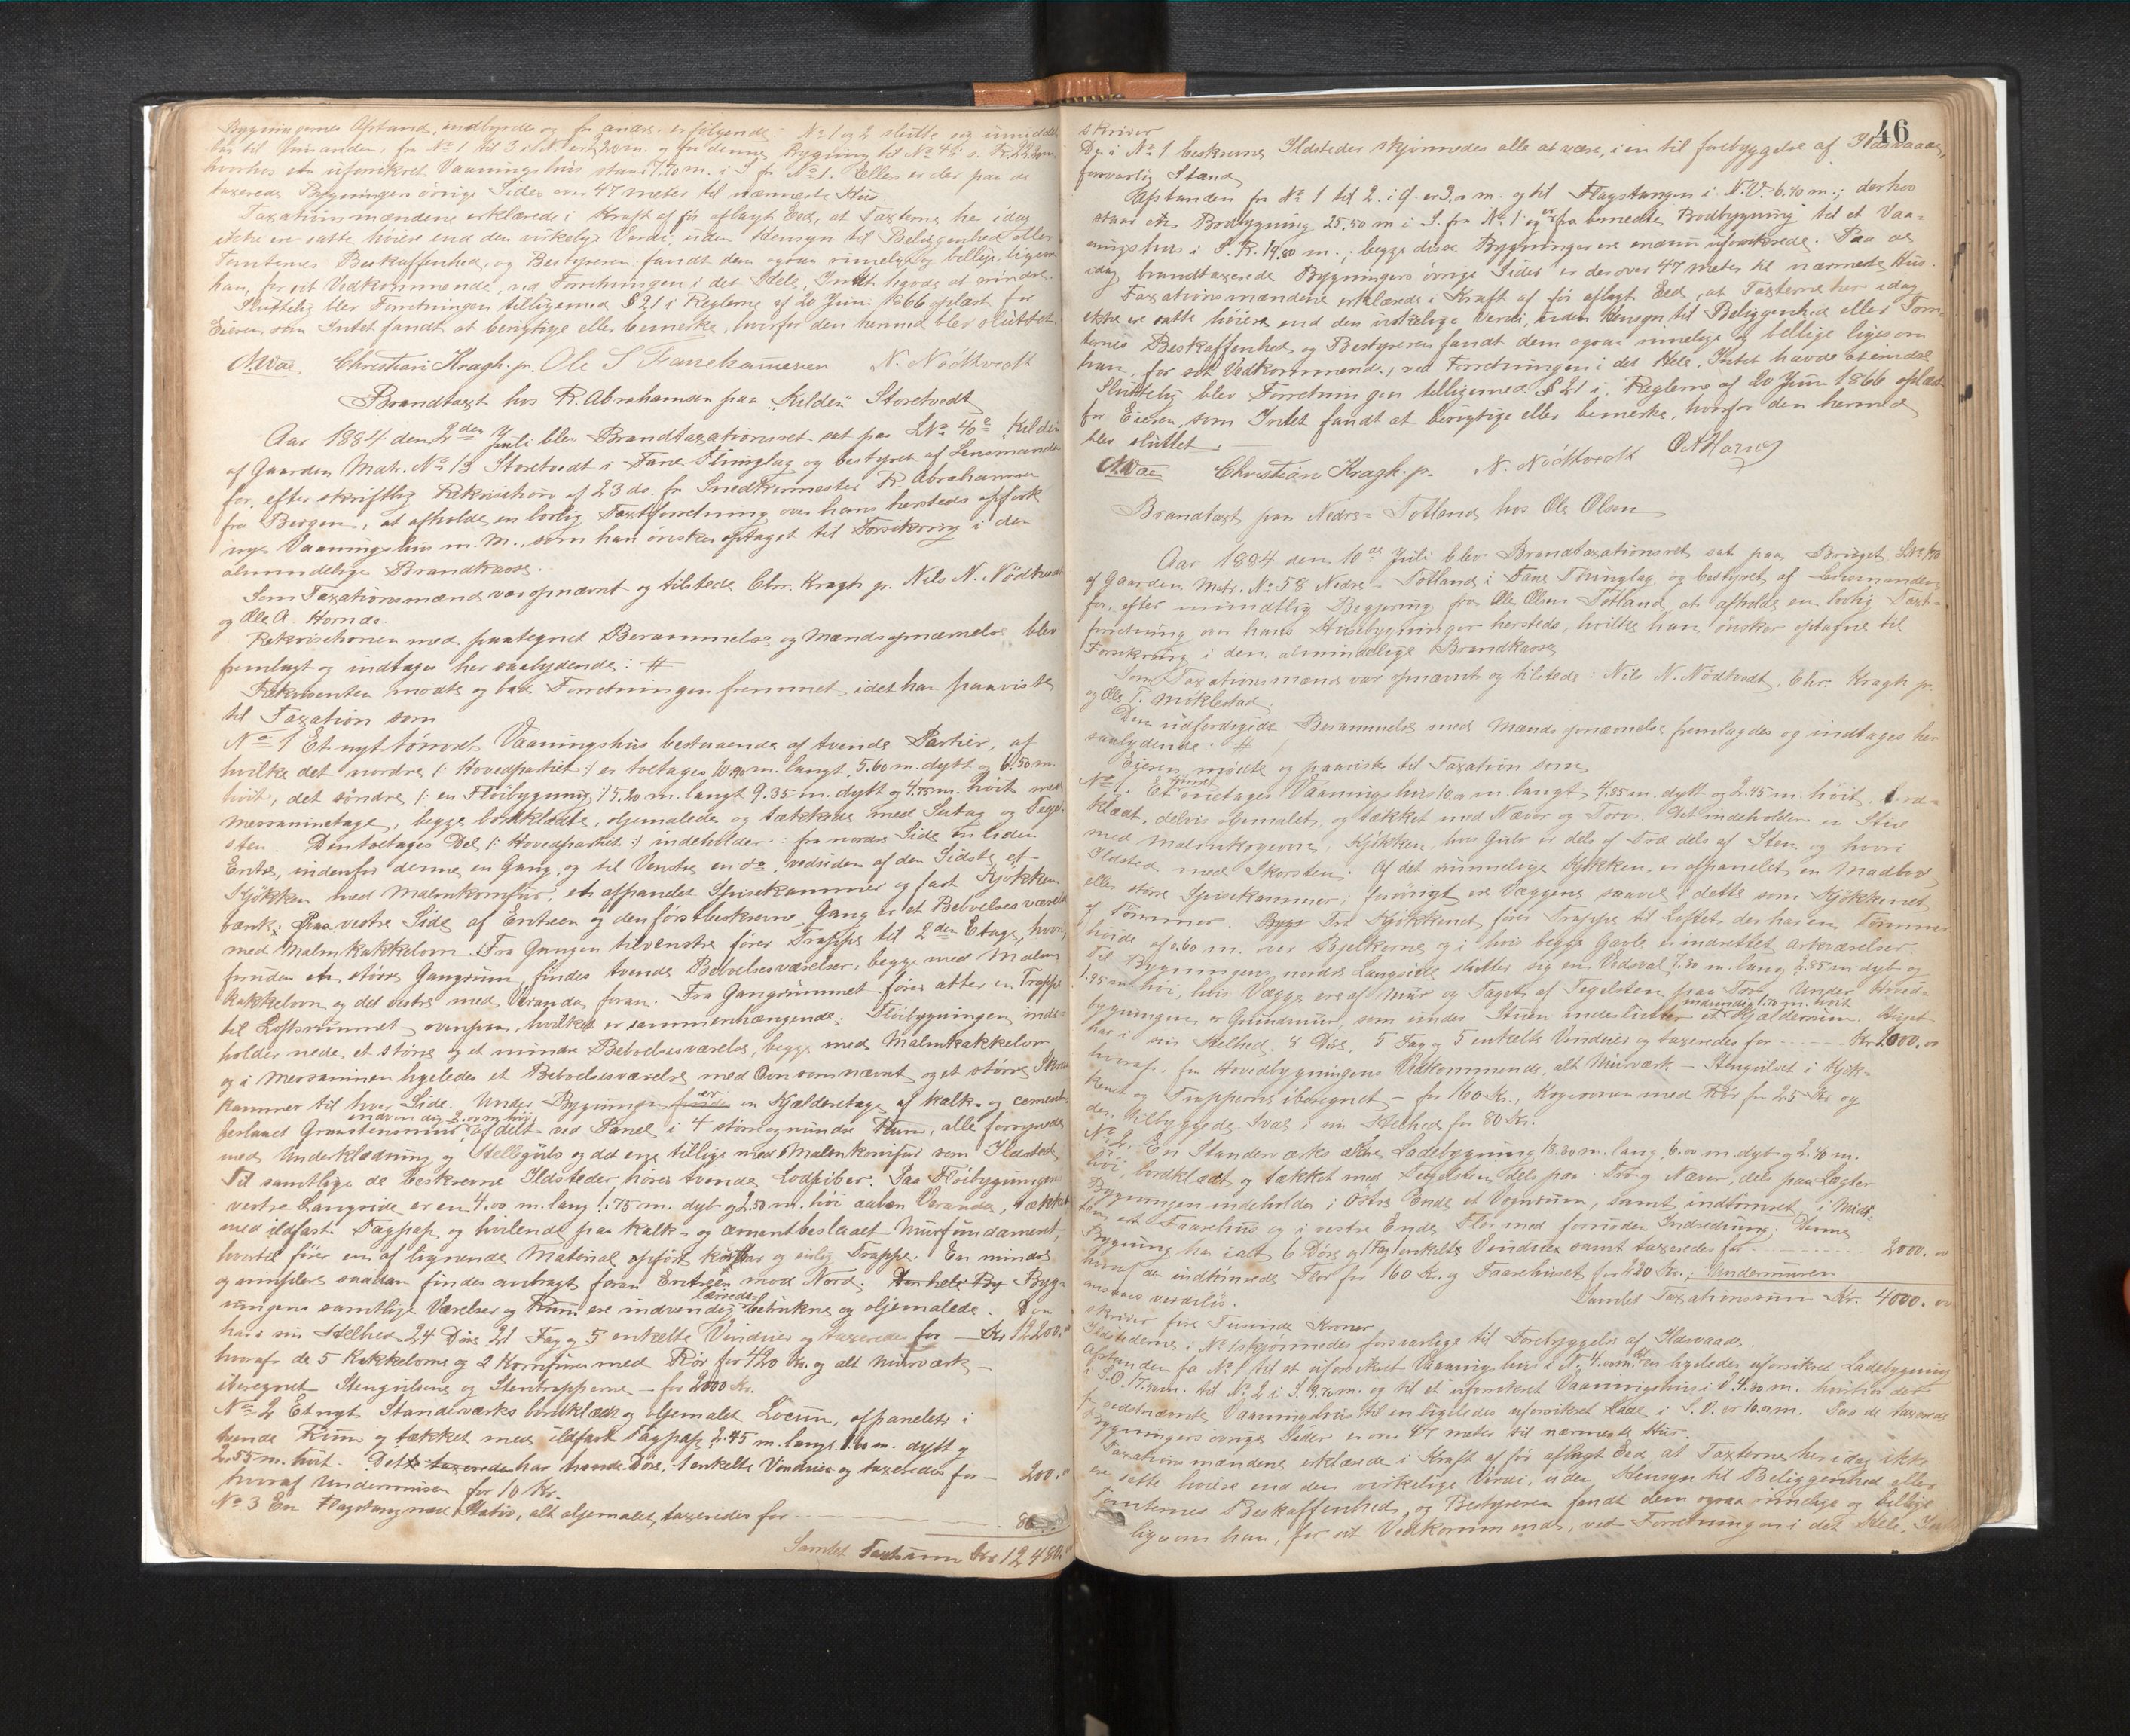 Bygningernes Afstand, indbyrdes og fra andre er følgende: No 1 og 2 slutte sig umiddel-
bar til hinanden, fra No 1 til 3 i N. er 7,20 m. og fra denne Bygning til No 4
hvorhos et uforsikret Vaaningshus staar 7.70 m. i S fra No 1. Ellers er der paa de
taxerede Bygningers övrige Sider over 47 meter til nærmeste Hus.
Taxationsmændene erklærede i Kraft af før aflagt Eed, at Taxterne her idag
ikke ere satte höiere end den virkelige Værdi, uden Hensyn til Beliggenhed eller
Tomternes Beskaffenhed, og Bestyreren fandt dem ogsaa rimelige og billige, ligesom
han, for sit Vedkommende, ved Forretningen i det Hele, Intet havde at erindre.
Sluttelig blev Forretningen tilligemed § 21 i Reglerne af 20 Juni 1866 oplæst for
Eieren, som Intet fandt at berigtige eller bemerke, hvorfor den hermed blev sluttet.
Christian Kragh. pr. Ole S Fanehameren N. Nödtvedt
Brandtaxt hos R. Abrahamsen paa "Kilden" Storetvedt
Aar 1884 den 2den Juli blev Brandtaxationsret sat paa LNo 40c "Kilden"
af Gaarden Matr. No 13 Storetvedt i Fane Thinglag og bestyret af Lensmanden
for, efter skriftlig Rekvisition af 23 ds. fra Snedkermester R. Abrahamsen
fra Bergen, at afholde en lovlig Taxtforretning over hans hersteds opförte
nye Vaaningshus m. M., som han önsker optaget til Forsikring i den
almindelige Brandkasse.
Som Taxationsmænd var opnævnt og tilstede Chr. Kragh pr. Nils N. Nödtvedt
og Ole A. Hornæs.
Rekvisitionen med paategnet Berammelse og Mandsopnævnelse blev
fremlagt og indtages her saalydende: #
Rekvirenten mödte og bad Forretningen fremmet, idet han paaviste
til Taxation som
No 1 Et nyt tömret Vaaningshus bestaaende af tvende Partier, af
hvilke det nordre (: Hovedpartiet :) er toetages 10.90 m. langt, 5.60 m. dybt og 6.50 m.
höit, det söndre (: en Flöibygning :) 5.20 m. langt 9.35 m. dybt og 4.75 m. höit med
Messaninetage, begge bordklædte, oljemalede og tækkede med Sutag og Tegl-
sten. Den toetages Del (: Hovedpartiet :) indeholder: fra nordre Side en liden
Entre, indenfor denne en Gang, og til Venstre en do, vedsiden af den Sidste et
Kjökken med Malmkomfur, et afpanelet Spisekammer og fast Kjökken
bænk; paa vestre Side af Entreen og den först beskrevne Gang er et Beboelsesværelse
med Malmkakkelovn. Fra Gangen tilvenstre förer Trappe til 2den Etage, hvor,
foruden et större Gangrum, findes tvende Beboelsesværelser, begge med Malm-
kakkelovn og det vestre med Veranda foran. Fra Gangrummet förer atter en Trappe
til Loftsrummet ovenpaa, hvilket er sammenhængende. Flöibygningen inde-
holder nede et större og et mindre Beboelsesværelse, begge med Malmkakkelovn
og i Messaninen ligeledes et Beboelsesværelse med Ovn som nævnt og et större Skraa-
kammer til hver Side. Under Bygningen findes er en Kjælderetage af kalk- og cement-
beslaaet Graastensmuur indvendig 2.00 m höi, afdelt ved Panel i 4 större og mindre Rum, alle forsynede
med Underklædning og Hellegulv og det ene tillige med Malmkomfur som Ildsted.
Til samtlige de beskrevne Ildsteder hörer tvende Lodpiber. Paa Flöibygningens
vestre Langside er en 4.00 m. lang 1.75 m. dyb og 2.50 m. höi aaben Veranda, tækket
med ildfast Tagpap og hvilende paa kalk- og cementbeslaaet Murfundament,
hvortil förer en af lignende Material opfört Trappe. En mindre
og simplere saadan findes anbragt foran Entreen mod Nord. Den hele By Byg-
ningens samtlige Værelser og Rum ere indvendig lærreds betrukne og oljemalede. Den
har i sin Helhed 24 Döre 21 Fag og 5 enkelte Vinduer og taxeredes for — Kr 12200.00
hvoraf de 5 Kakkelovne og 2 Komfurer med Rör for 420 Kr. og alt Murværk —
iberegnet Stengulvene og Stentrapperne — for 2000 Kr.
No 2 Et nyt Standerværks bordklædt og oljemalet Locum, afpanelet i
tvende Rum og tækket med ildfast Tagpap, 2.45 m. langt 1.60 m. dybt og
2.55 m. höit. Det taxeredes har tvende Döre, 1 enkelte Vindue og taxeredes for — 200.00
hvoraf Undermuren for 10 Kr.
No 3 En Flagstang med Stativ, alt oljemalet, taxeredes for — 80
Samlet Taxtsum Kr 12480.00
46
skriver
De i No 1 beskrevne Ildsteder skjönnedes alle at være, i en til forebyggelse af Ildsvaade,
forsvarlig Stand
Afstanden fra No 1 til 2 i er 3.0 m. og til Flagstangen i N.V. 6.40 m.; derhos
staar en Bodbygning 25.50 m i S. fra No 1 og er fra bemeldte Bodbygning til et Vaa-
ningshus i 19.80 m.; begge disse Bygninger ere endnu uforsikrede. Paa de
idag brandtaxerede Bygningers övrige Sider er der over 47 meter til nærmeste Hus.
Taxationsmændene erklærede i Kraft af før aflagt Eed, at Taxterne her idag
ikke er satte höiere end den virkelige Værdi, uden Hensyn til Beliggenhed eller Tom-
ternes Beskaffenhed, og Bestyreren fandt dem ogsaa rimelige og billige ligesom
han, for sit Vedkommende, ved Forretningen i det Hele, Intet havde at erindre.
Sluttelig blev Forretningen tilligemed § 21 i Reglerne af 20 Juni 1866 oplæst
for Eieren, som Intet fandt at berigtige eller bemerke, hvorfor den hermed
blev sluttet.
Christian Kragh. p. N. Nödtvedt O A Hornæs
Brandtaxt paa Nedre-Totland hos Ole Olsen
Aar 1884 den 10de Juli blev Brandtaxationsret sat paa Bruget LNo 170
af Gaarden Matr. No 58 Nedre-Totland i Fane Thinglag og bestyret af Lensmanden
for, efter mundtlig Begjæring fra Ole Olsen Totland, at afholde en lovlig Taxt-
forretning over hans Husebygninger hersteds, hvilke han önsker optagne til
Forsikring i den almindelige Brandkasse
Som Taxationsmænd var opnævnt og tilstede: Nils N. Nödtvedt, Chr. Kragh pr.
og Ole T. Mjöklestad.
Den udfærdigede Berammelse med Mandsopnævnelse fremlagdes og indtages her
saalydende: #
Eieren mödte og paaviste til Taxation som
No 1. Et tömret enetages Vaaningshus 10.0 m. langt 4.85 m. dybt og 2.45 m. höit, bord-
klædt, delvis oljemalet, og tækket med Næver og Torv. Det indeholder en Stue
med Malmkogeovn, Kjökken, hvis Gulv er dels af Træ dels af Sten og hvori
Ildsted med Skorsten. Af det rummelige Kjökken er afpanelet en Madbod
eller större Spisekammer; forövrigt ere Væggene saavel i dette som Kjökkenet
af Tömmer. Bygs Fra Kjökkenet förer Trappe til Loftet der har en Tömmer
höide af 0.60 m. over Bjelkerne og i hvis begge Gavle er indrettet Arkværelser.
Til Bygningens nordre Langside slutter sig en Vedsval 7.30 m. lang 2.85 m. dyb og
1.95 m. höi, hvis Vægge ere af Mur og Taget af Teglsten paa Træ. Under Hoved-
bygningen er Grundmur, som under Stuen indeslutter et indvendig 1.70 m. höit Kjælderrum. Huset
har i sin Helhed 8 Döre, 5 Fag og 5 enkelte Vinduer og taxeredes for — Kr 2000.00
hvoraf, for Hovedbygningens Vedkommende, alt Murværk — Stengulvet i Kjök-
kenet og Trapperne iberegnet — for 160 Kr., Kogeovnen med Rör for 25 Kr og
den tilbyggede Sval i sin Helhed for 80 Kr.
No 2. En Standerværks Ladebygning 18.30 m. lang, 6.00 m. dyb og 2.40 m.
höi, bordklædt og tækket med Teglsten dels paa Træ og Næver, dels paa Lægter
Bygningen indeholder i Östre Ende et Vognrum, samt indtömret, i Midt-
ten et Faarehus og i vestre Ende Flor med foruden Indredning. Denne
Bygning har ialt 6 Döre og 1 Fag enkelte Vinduer samt taxeredes for — 2000.00
hvoraf den indtömrede Flor for 160 Kr. og Faarehuset for 120 Kr.; Undermuren
ansaaes værdilös. Samlet Taxationssum Kr. 4000.00
skriver fire Tusinde Kroner
Ildstederne i No 1 skjönnedes forsvarlige til Forebyggelse af Ildsvaade.
Afstanden fra No 1 til et uforsikret Vaaningshus i N. 4. m. til en ligeledes uforsikret Ladebygning
i S.O. 17.50 m. til No 2 i S. 9.70 m. og til et uforsikret Vaaningshus i V. 4.30 m. hvorhos der
sidstnævnte Vaaningshus til en ligeledes uforsikret Lade i S.V. er 10.0 m. Paa de taxerede
Bygningers övrige Sider er over 47 meter til nærmeste Hus.
Taxationsmændene erklærede i Kraft af før aflagt Eed, at Taxterne her idag ikke
ere satte höiere end den virkelige Værdi, uden Hensyn til Beliggenhed eller
Tomternes Beskaffenhed, og Bestyreren fandt dem ogsaa rimelige og billige
ligesom han, for sit Vedkommende, ved Forretningen i det Hele, Intet